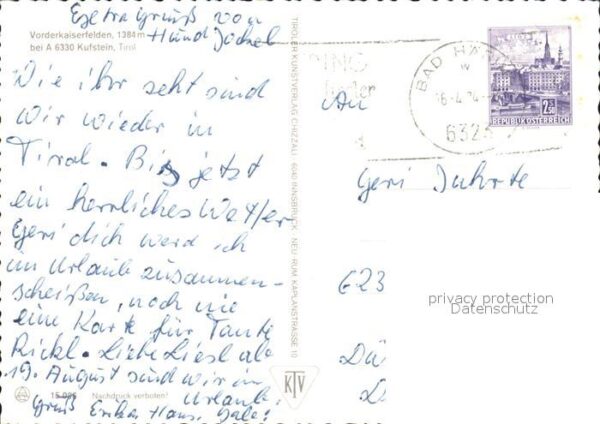 Extra Gruß von
Hund Jockel
Vorderkaiserfelden, 1384 m
bei A 6330 Kufstein, Tirol
Wie ihr seht sind
wir wieder in
Tirol. Bis jetzt
ein herrliches Wetter
Geri dich werd ich
im Urlaub zusammen-
scheißen, noch nie
eine Karte für Tante
Rickl. Liebe Liesl ab
19. August sind wir in
Urlaub.
Gruß Erika Hans
15 086 Nachdruck verboten!
TIROLER KUNSTVERLAG CHIZZALI 6040 INNSBRUCK - NEU-RUM KAPLANSTRASSE 10
KTV
BAD HÄ
16.-4.74
632
2.50
REPUBLIK ÖSTERREICH
An
Geri
623
privacy protection
Datenschutz